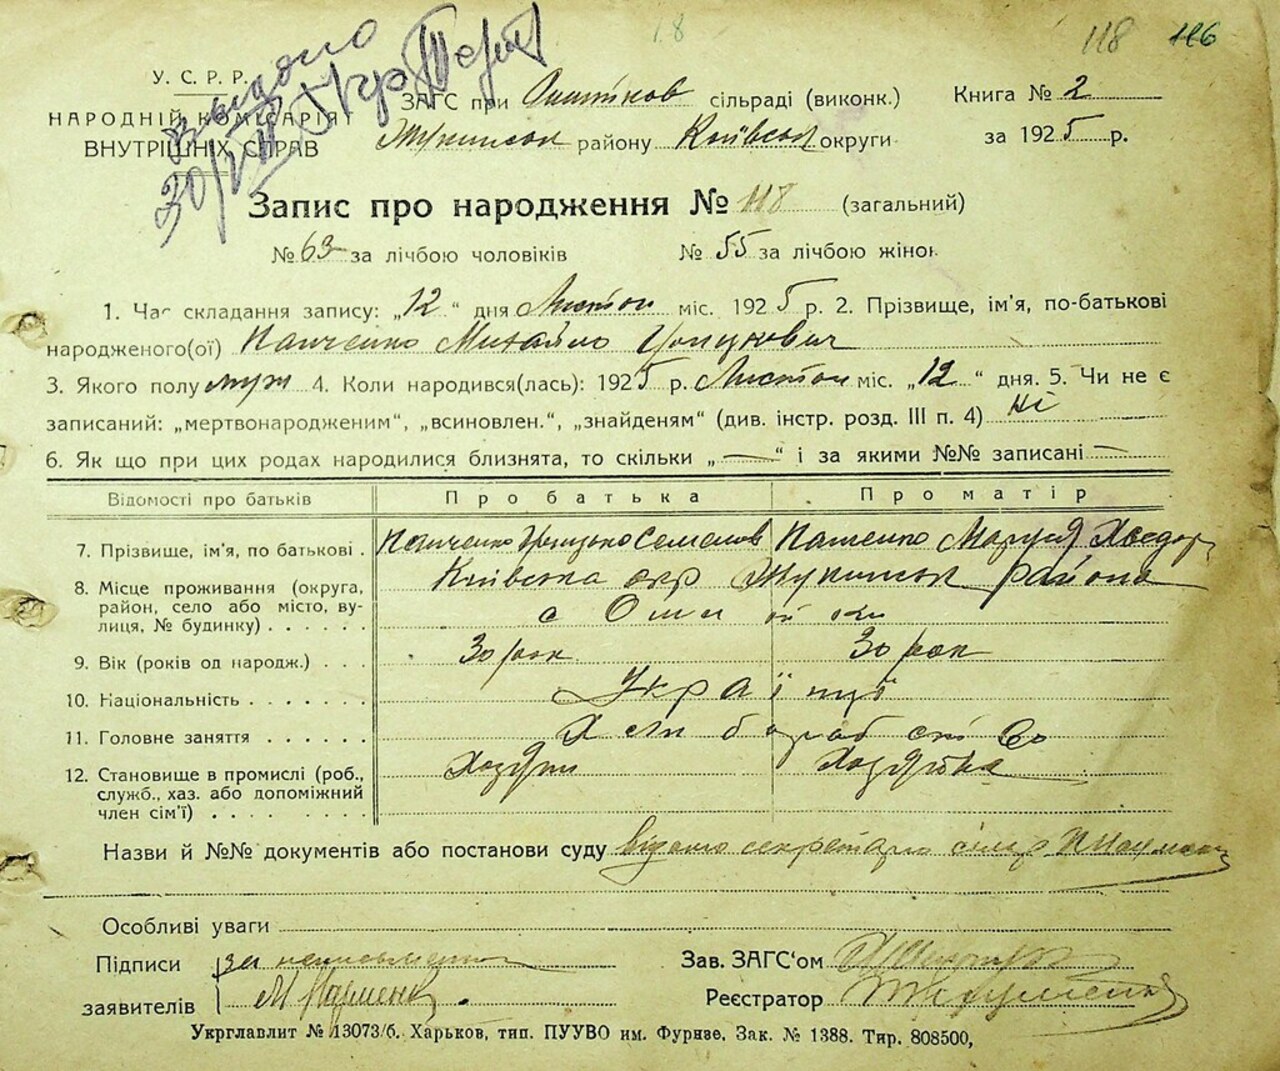 118 116
У. С. Р. Р.
НАРОДНІЙ КОМІСАРІЯТ
ВНУТРІШНІХ СПРАВ
Видано
ЗАГС при сільраді (виконк.)
району Київськ округи
Книга № 2
за 1925 р.
Запис про народження № 118 (загальний)
№ 63 за лічбою чоловіків № 55 за лічбою жінок
1. Час складання запису: „12“ дня Листоп міс. 1925 р. 2. Прізвище, ім'я, по-батькові
народженого(ої) Панченко Михайло Грицкович
3. Якого полу муж 4. Коли народився(лась): 1925 р. Листоп міс. „12“ дня. 5. Чи не є
записаний: „мертвонародженим“, „всиновлен.“, „знайденям“ (див. інстр. розд. III п. 4) Ні
6. Як що при цих родах народилися близнята, то скільки „—“ і за якими №№ записані —
Відомості про батьків Про батька Про матір
7. Прізвище, ім'я, по батькові . Панченко Грицько Семенов Панченко Мария Хведор
8. Місце проживання (округа, район, село або місто, вулиця, № будинку) . . . . . . Київська окр Жукинськ района
с
9. Вік (років од народж.) . . . 30 рок 30 рок
10. Національність . . . . . . . Українці
11. Головне заняття . . . . . . Хліборобство
12. Становище в промислі (роб., служб., хаз. або допоміжний член сім'ї) . . . . . . . Хазяїн Хазяйка
Назви й №№ документів або постанови суду відомо секретарю сільр
Особливі уваги
Підписи за неписьменного
заявителів М
Зав. ЗАГС‘ом
Реєстратор
Укрглавлит № 13073/б. Харьков, тип. ПУУВО им. Фрунзе. Зак. № 1388. Тир. 808500,